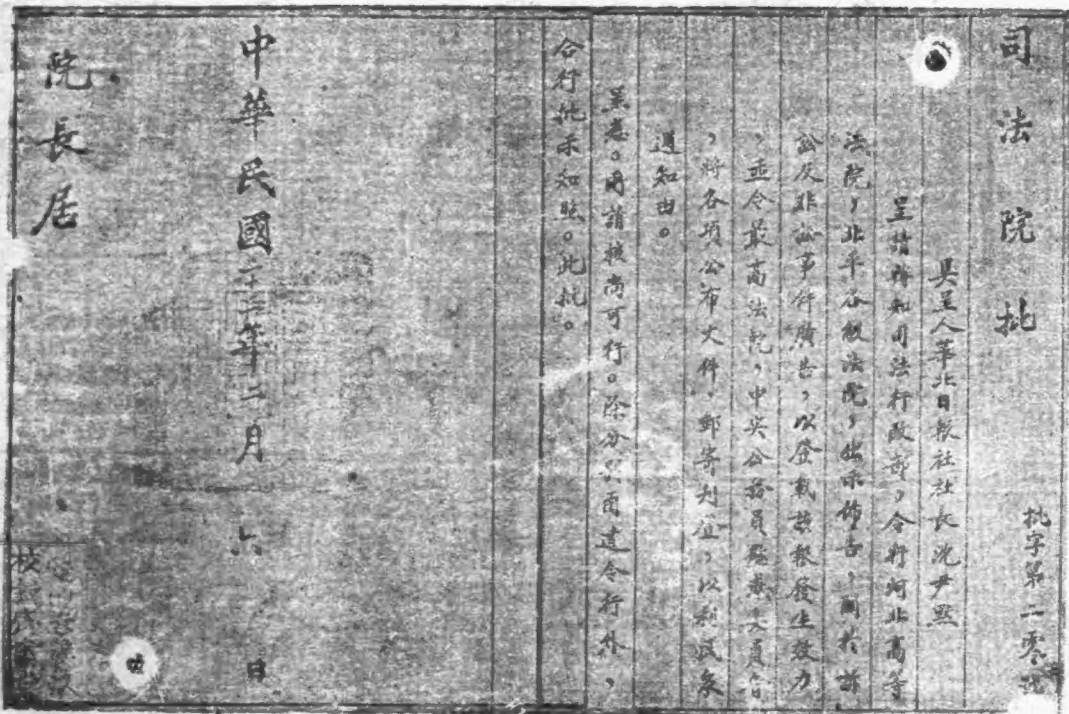 司法院批
批字第二零號
具呈人華北日報社社長沈尹默
呈請轉知司法行政部,令行河北高等
法院,北平各級法院,出示佈告,關於訴
訟及非訟事件廣告,以登載該報發生效力
,並令最高法院,中央公務員懲戒委員會
,將各項公布文件,郵寄刊登,以利民衆
週知由。
呈悉。所請核尚可行。除分別函達令行外,
合行批示知照。此批。
中華民國二十二年二月六日
院長居
校對